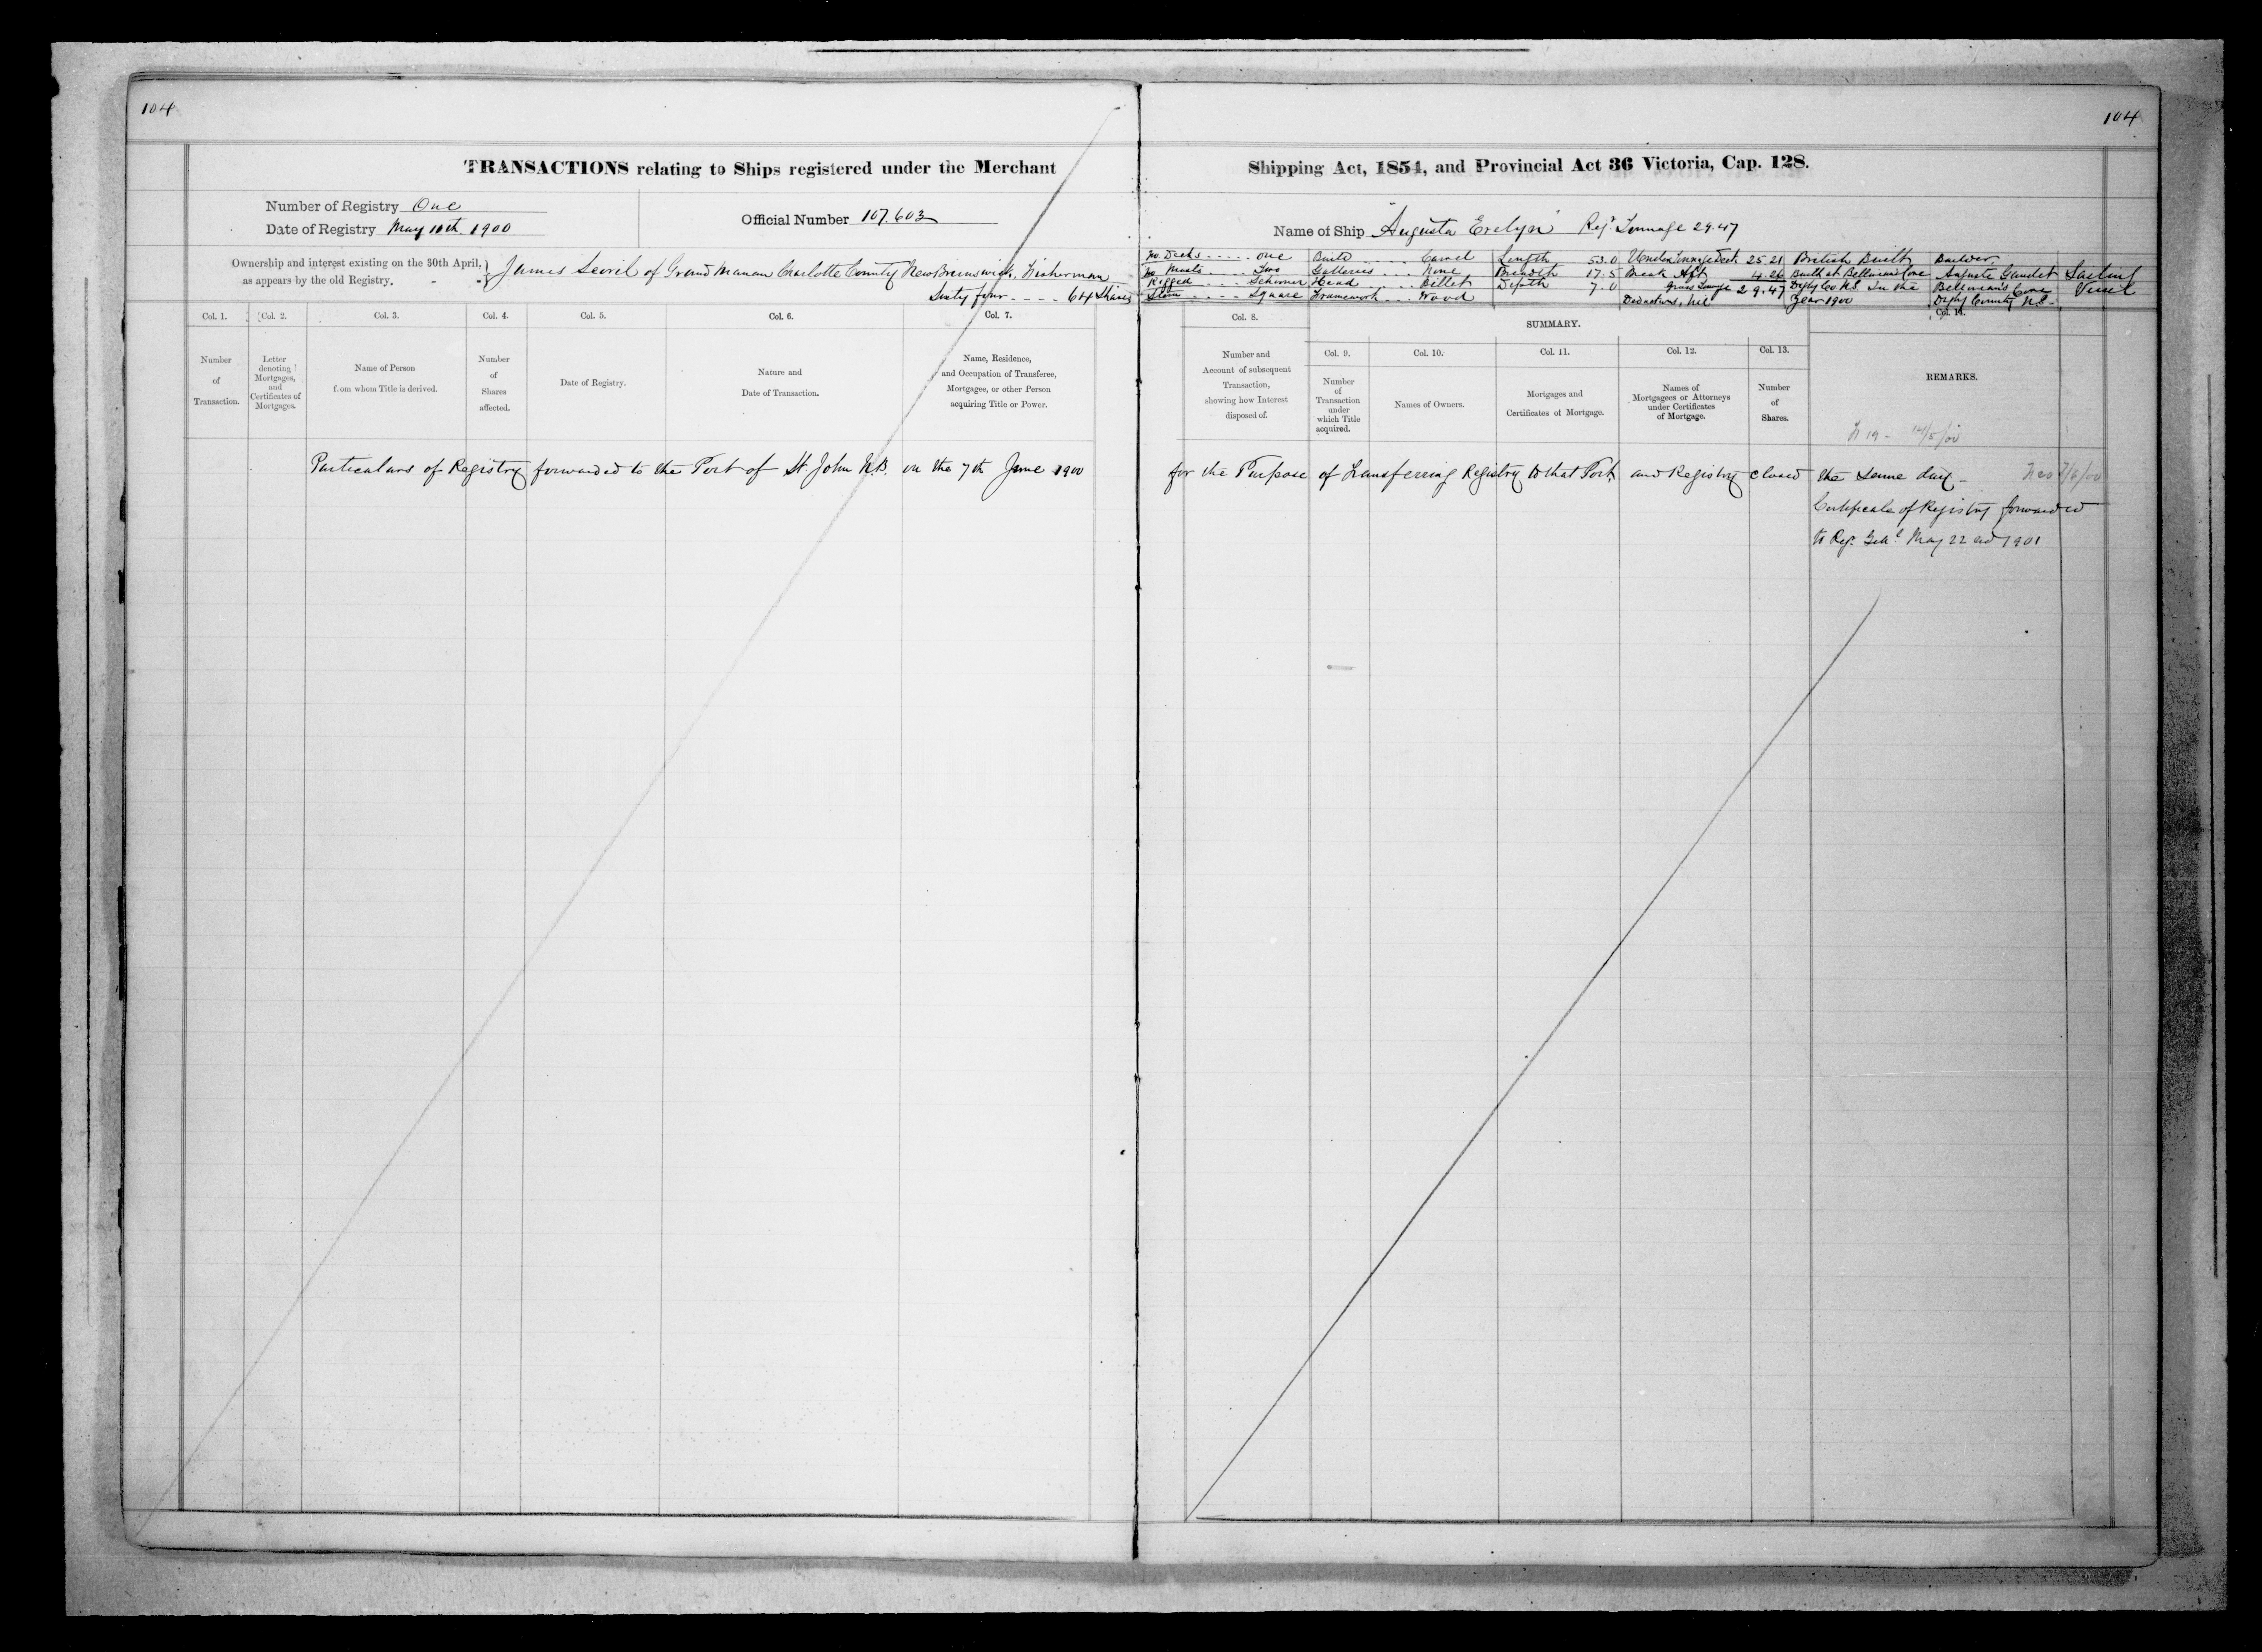 104
104
TRANSACTIONS relating to Ships registered under the Merchant Shipping Act, 1854, and Provincial Act 36 Victoria, Cap. 128.
Number of Registry One
Date of Registry May 10th. 1900
Official Number 107.603
Name of Ship "Augusta Evelyn" Reg. Tonnage 29.47
Ownership and interest existing on the 30th April,
as appears by the old Registry.
James of Grand Manan Charlotte County New Brunswick, Fisherman
Sixty four - - - - 64 Shares
No Decks ..... One
No Masts .... Two
Rigged .... Schooner
Stem ..... Square
Build ..... Carvel
Galleries ... None
Head ..... Billet
Framework ... Wood
Length 53.0
Breadth 17.5
Depth 7.0
Under Tonnage Deck 25.21
Break Aft 4.26
Gross Tonnage 29.47
Deductions, Nil
British Built
Built at Belliveau's Cove
Digby Co N.S. In the
Year 1900
Builder.
Auguste Gaudet
Belliveau's Cove
Digby County N.S.
Sailing
Vessel
Col. 1.
Number
of
Transaction.
Col. 2.
Letter
denoting
Mortgages,
and
Certificates of
Mortgages.
Col. 3.
Name of Person
from whom Title is derived.
Col. 4.
Number
of
Shares
affected.
Col. 5.
Date of Registry.
Col. 6.
Nature and
Date of Transaction.
Col. 7.
Name, Residence,
and Occupation of Transferee,
Mortgagee, or other Person
acquiring Title or Power.
Col. 8.
Number and
Account of subsequent
Transaction,
showing how Interest
disposed of.
SUMMARY.
Col. 9.
Number
of
Transaction
under
which Title
acquired.
Col. 10.
Names of Owners.
Col. 11.
Mortgages and
Certificates of Mortgage.
Col. 12.
Names of
Mortgagees or Attorneys
under Certificates
of Mortgage.
Col. 13.
Number
of
Shares.
Col. 14.
REMARKS.
Particulars of Registry forwarded to the Port of St John N.B. on the 7th June 1900 for the Purpose of Transferring Registry to that Port, and Registry closed the same day - 7/6/00
Certificate of Registry forwarded
to Reg. Genl May 22nd 1901